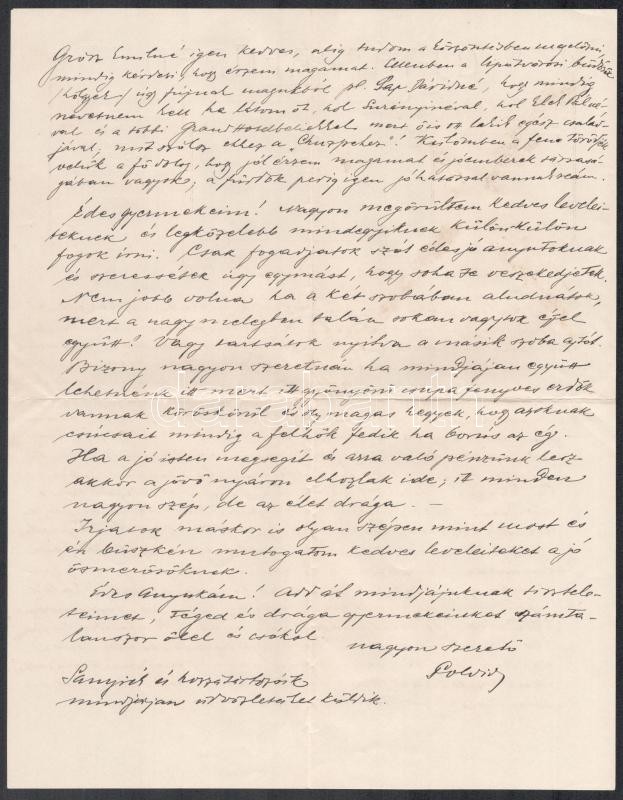 Grósz Emilné igen kedves, alig tudom a köszöntésben megelőzni,
mindig kérdezi, hogy érzem magamat. Ellenben a lipótvárosi
hölgyek úgy fujnak magukból pl. Pap Dávidné, hogy mindig
nevetnem kell ha látom őt, hol Surányinéval, hol Elek Pálné-
val és a többi Grand hotelbeliekkel mert ő is ott lakik egész család-
jával; mit szólsz ehhez a "Chuzpehez"! Különben a fene törődjék
velük a fődolog, hogy jól érzem magamat és jó emberek társasá-
gában vagyok; a fürdők pedig igen jó hatással vannak reám.
Édes gyermekeim! Nagyon megörültem kedves levelei-
teknek és legközelebb mindegyiknek külön külön
fogok írni. Csak fogadjatok szót édes jó anyutoknak
és szeressétek úgy egymást, hogy soha se veszekedjetek.
Nem jobb volna ha a két szobában aludnátok,
mert a nagy melegben talán sokan vagytok éjjel
együtt! Vagy tartsátok nyitva a másik szoba ajtót.
Bizony nagyon szeretném ha mindjájan együtt
lehetnénk itt mert itt gyönyörű szép fenyves erdők
vannak köröskörül és oly magas hegyek, hogy azoknak
csúcsait mindig a felhők fedik ha borús az ég.
Ha a jó isten megsegít és arra való pénzünk lesz
akkor a jövő nyáron elhozlak ide; itt minden
nagyon szép, de az élet drága. –
Irjatok máskor is olyan szépen mint most és
én büszkén mutogatom kedves leveleiteket a jó
ösmerősöknek.
Édes Anyukám! Add át mindjájuknak tisztele-
teimet, Téged és drága gyermekeinket számta-
lanszor ölel és csókol
nagyon szerető
Poldid
Sanyiék és hozzátartozóik
mindjájan üdvözletüket küldik.
darabanth